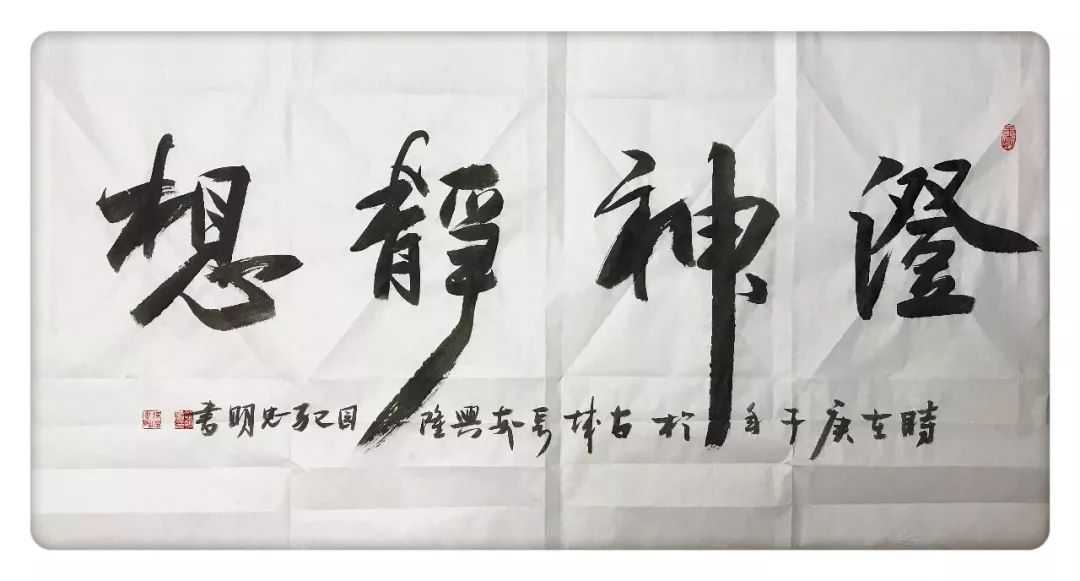 澄神靜想
時在庚子年於古城長安興隆忠明書